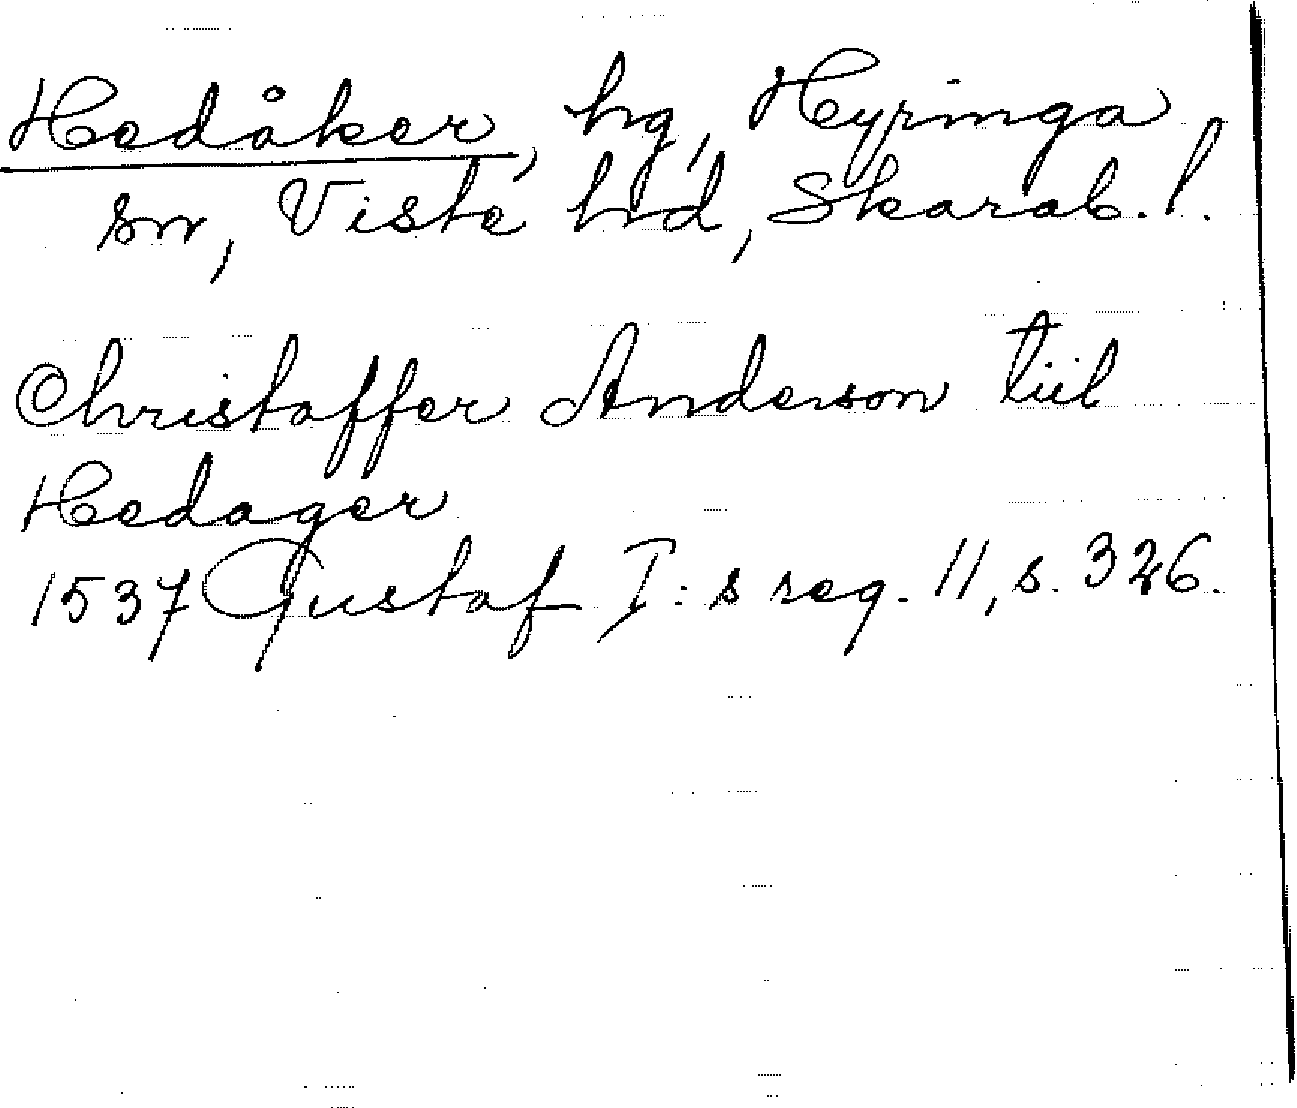 Hedåker, hg, Hyringa
sn, Viste hrd, Skarab. l.
Christoffer Anderson tiil
Hedager
1537 Gustaf I:s reg. 11, s. 326.